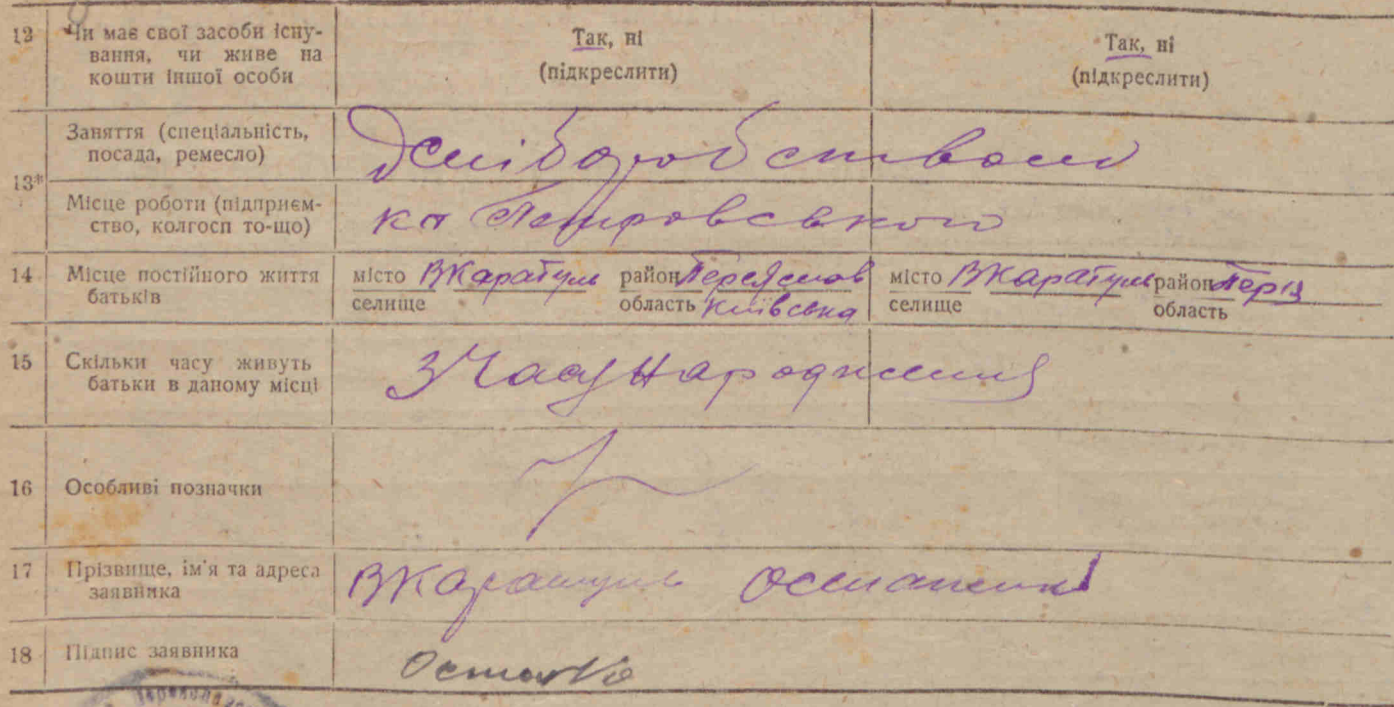 12 Чи має свої засоби існу-
вання, чи живе на
кошти іншої особи
Так, ні
(підкреслити)
Так, ні
(підкреслити)
13*
Заняття (спеціальність,
посада, ремесло)
Місце роботи (підприєм-
ство, колгосп то-що)
кг Петровського
14 Місце постійного життя
батьків
місто ВКаратуль район Переяслов
селище область Київська
місто ВКаратуль район
селище область
15 Скільки часу живуть
батьки в даному місці
З Часу Народження
16 Особливі позначки
17 Прізвище, ім'я та адреса
заявника
ВКаратуль
18 Підпис заявника